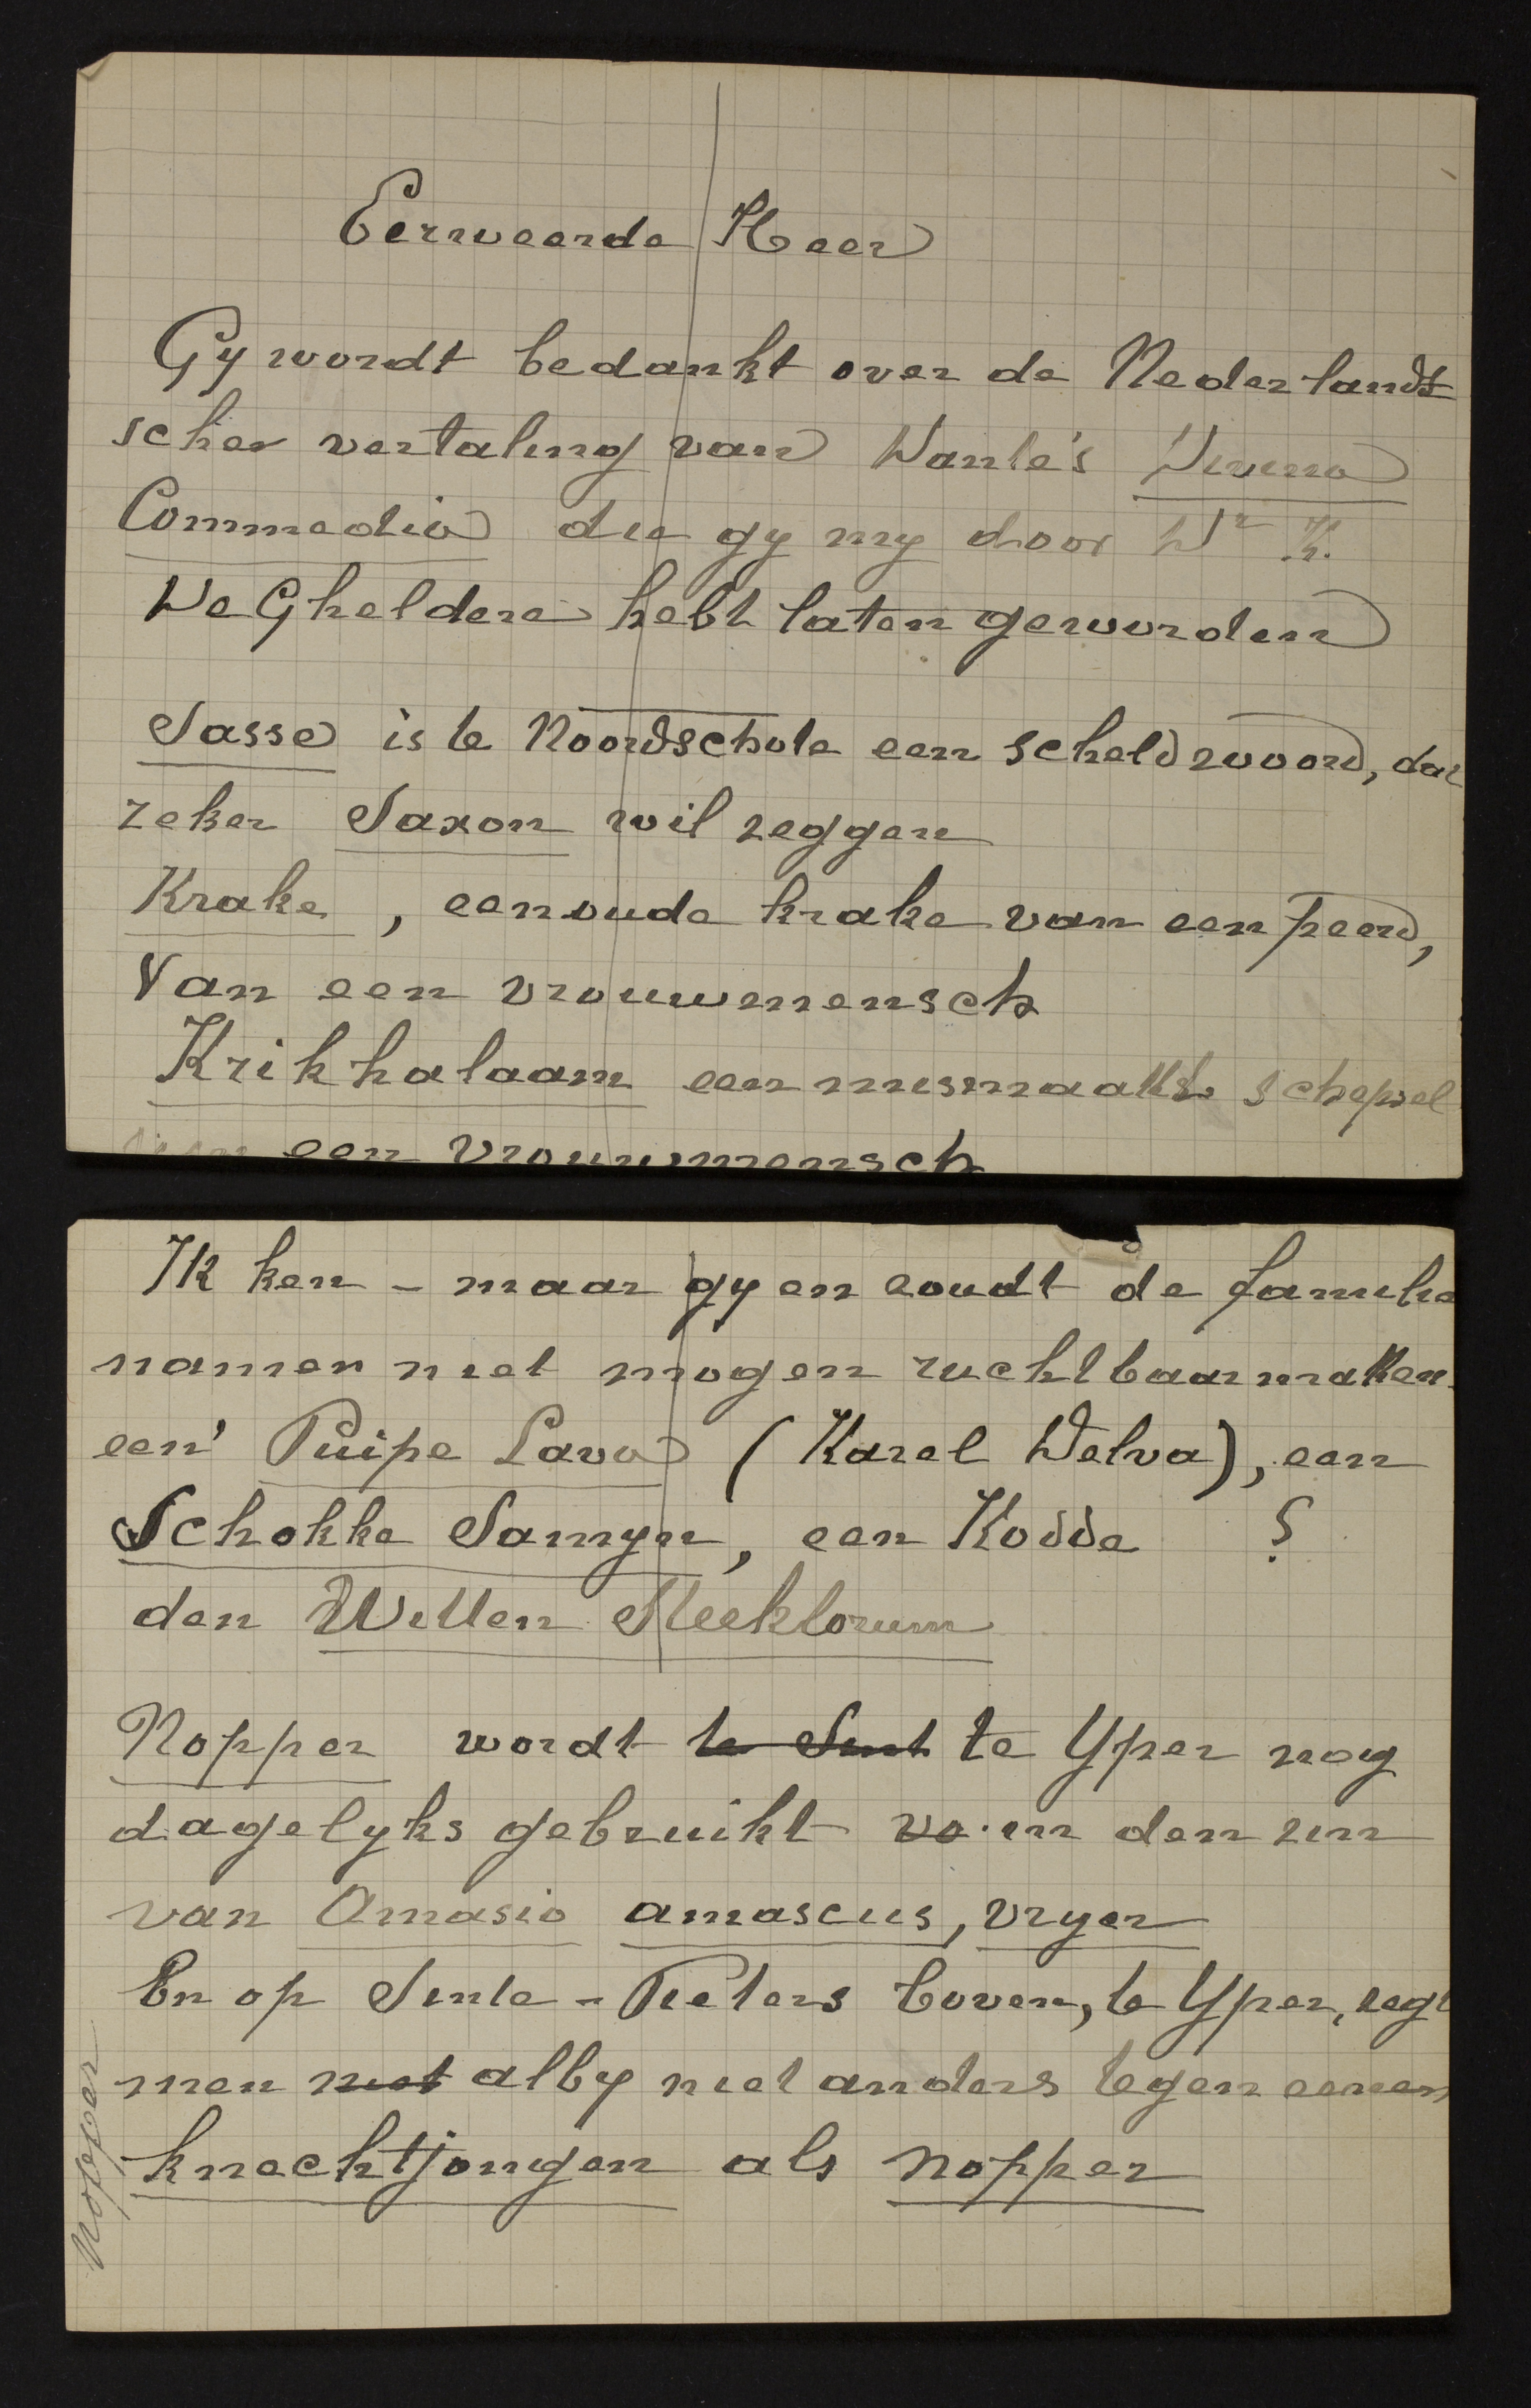 Eerweerde Heer
Gy wordt bedankt over de Nederlandt
scher vertaling van Dante's Divina
Commedia die gy my door Dr K.
De Gheldere hebt laten geworden
Sasse is te Noordschote een scheldwoord, dat
zeker Saxon wil zeggen
Krake, eenoude krake van een peerd,
Van een vrouwemensch
Krikhalaam een mismaakt schepsel
van een vrouwmensch
Ik ken - maar gy en zoudt de familie
namen niet mogen ruchtbaarmaken
een' Puipe Lava (Karel Delva), een
Schokke Samyn, een Kodde ?
den Witten Meeklorum
Nopper wordt te Sint te Yper nog
dagelyks gebruikt vo in den zin
van Amasio amascus, vryer
En op Sinte-Pieters boven, te Yper, zegt
men niet alby niet anders tegen eenen
knechtjongen als nopper
Nopper